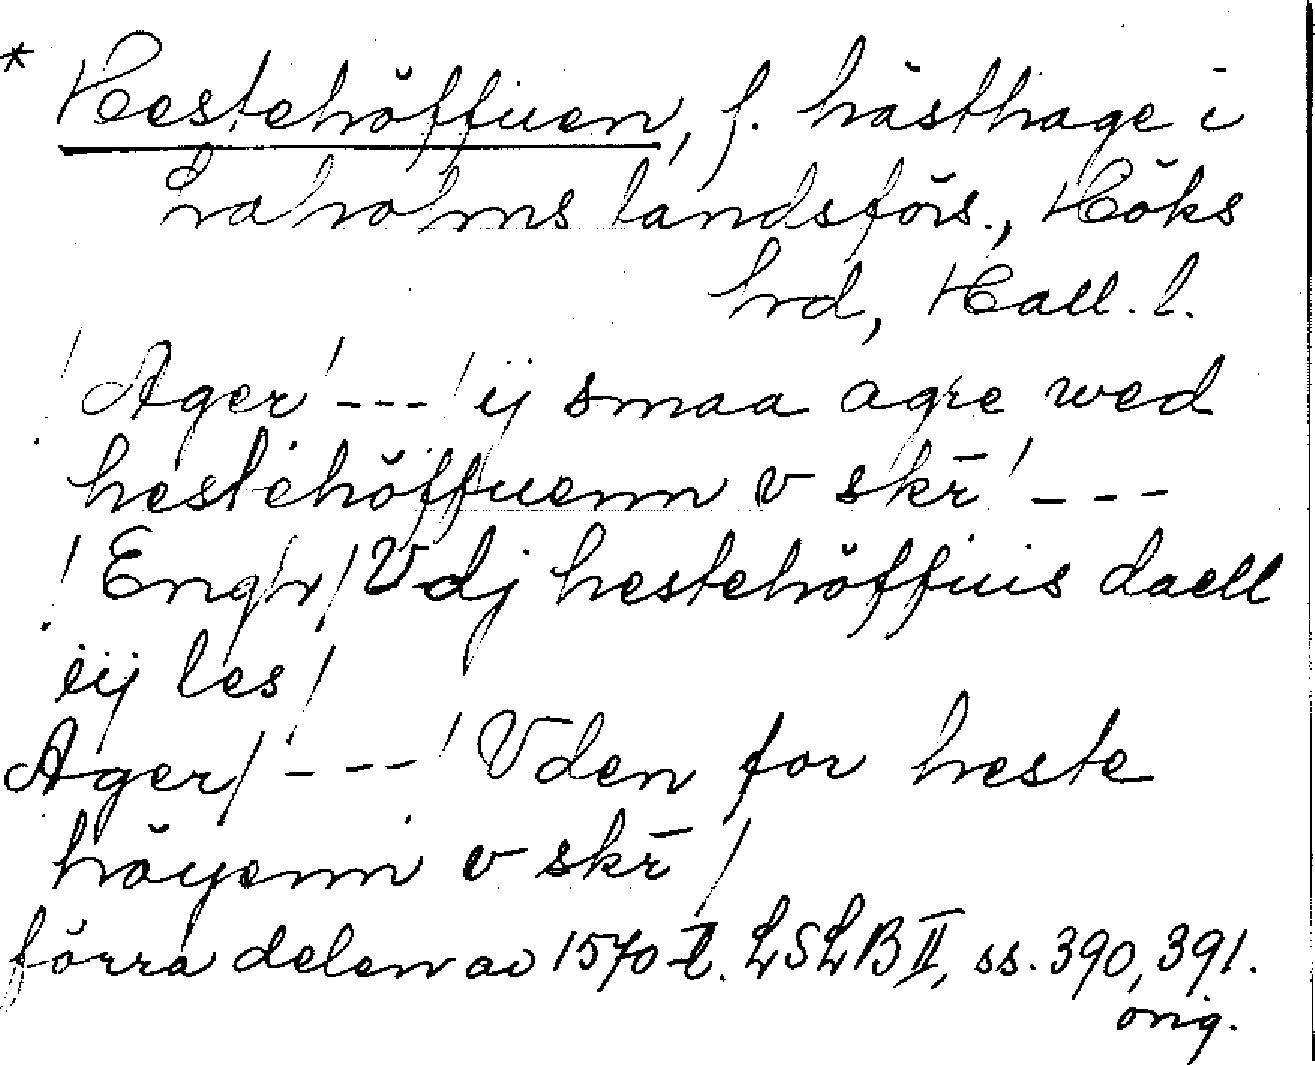 * Hestehöffuen, f. hästhage i
Laholms landsförs., Höks
hrd, Hall. l.
! Ager ! --- ! ij smaa agre wed
hestehöffuenn v skr̄ ! ---
! Engh / Vdj hestehöffuis daell
iij les /
Ager / --- ! Vden for heste
höyenn v skr̄ /
förra delen av 1570-t. LSLB II, ss. 390, 391.
orig.